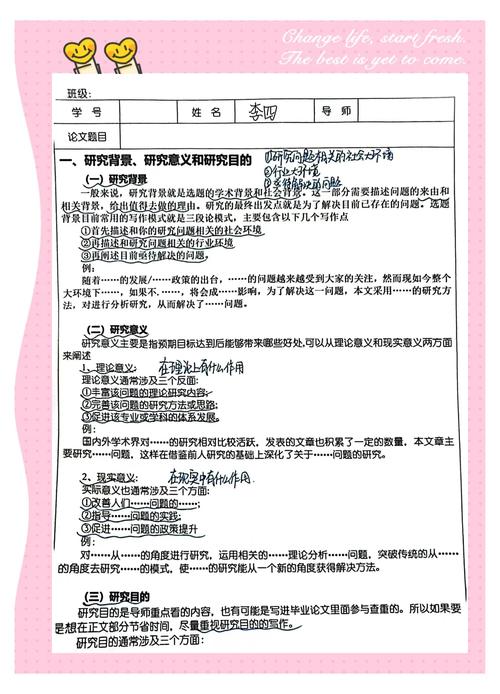 Change life, start fresh.
The best is yet to come.
班级:
学 号 姓 名 李四 导 师
论文题目
一、研究背景、研究意义和研究目的 ①研究问题相关的社会大环境
②行业大环境
(一) 研究背景 ③亟待解决的问题
一般来说，研究背景就是选题的学术背景和社会背景。这一部分需要描述问题的来由和
相关背景，给出值得去做的理由。研究的最终出发点就是为了解决目前已存在的问题。选题
背景目前常用的写作模式就是三段论模式，主要包含以下几个写作点
①首先描述和你的研究问题相关的社会环境
②再描述和研究问题相关的行业环境
③再阐述目前亟待解决的问题。
例:
随着……的发展/……政策的出台，……的问题越来越受到大家的关注，然而现如今整个
大环境下……，如果不.……，将会成……影响，为了解决这一问题，本文采用……的研究方
法，对进行分析研究，从而解决了……问题。
(二) 研究意义
研究意义主要是指预期目标达到后能够带来哪些好处,可以从理论意义和现实意义两方面
来阐述
1、理论意义: 在理论上有什么作用
理论意义通常涉及三个反面:
①丰富该问题的理论研究内容;
②完善该问题的研究方法或思路;
③促进该专业或学科的体系发展。
例:
国内外学术界对……的研究相对比较活跃，发表的文章也积累了一定的数量，本文章主
要研究……问题，这样在借鉴前人研究的基础上深化了关于……问题的研究。
2、现实意义: 在现实中有什么作用.
实际意义也通常涉及三个方面:
①改善人们……问题的……;
②指导……问题的实践;
③促进……问题的政策提升
例:
对……从……的角度进行研究，运用相关的……理论分析……问题，突破传统的从……
的角度去研究……的模式，使……的研究能从一个新的角度获得解决方法。
(三) 研究目的
研究目的是导师重点看的内容，也有可能是写进毕业论文里面参与查重的。所以如果要
是想在正文部分节省时间，尽量重视研究目的的写作。
研究目的通常涉及三个方面: